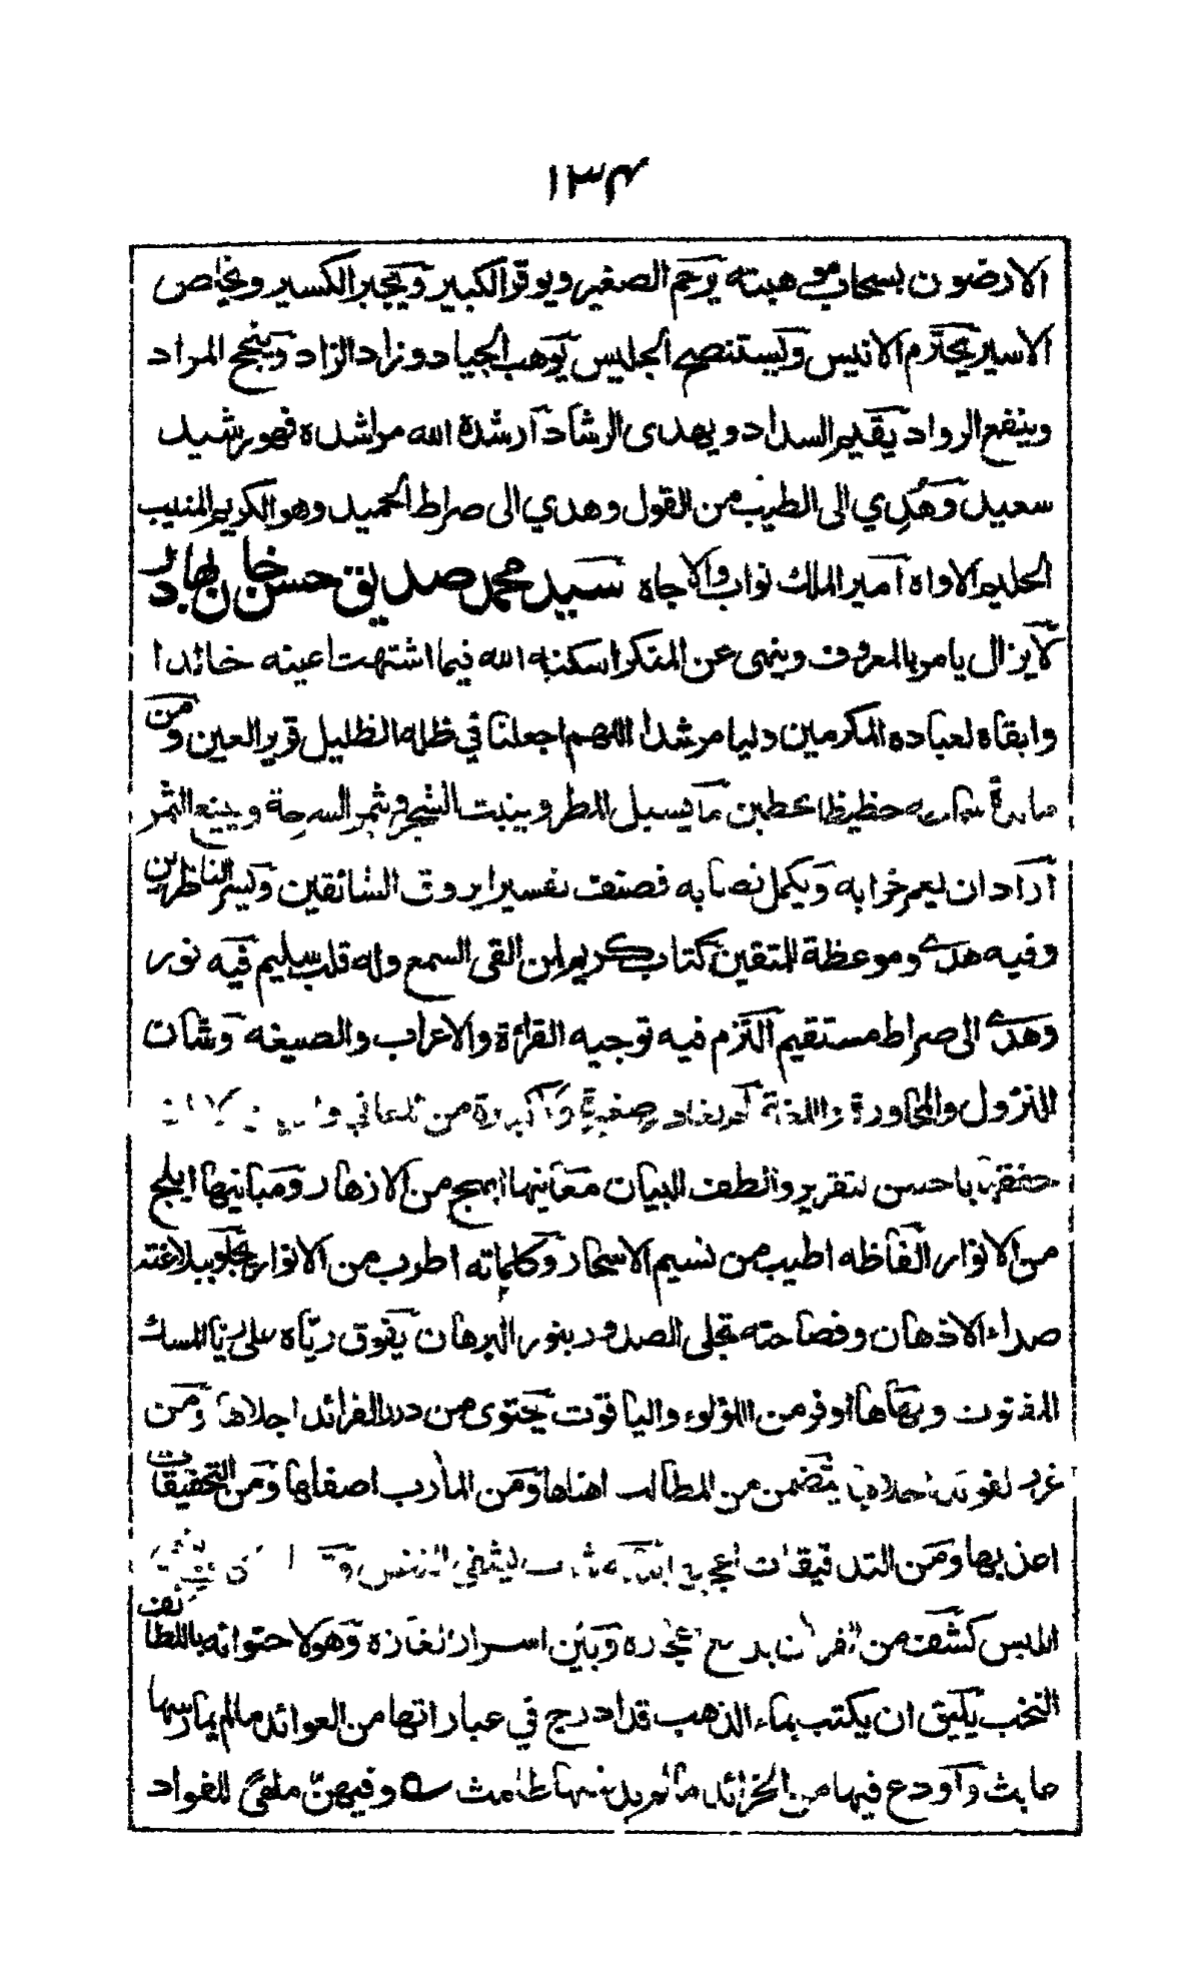 ۱۳۴
الارضون بسحاب موهبته يرحم الصغير ويوقر الكبير ويجبر الكسير ويخاص
الاسير يحترم الانيس ويستنصح الجليس يوهب الجياد وزاد الزاد وينجح المراد
وينفع الرواد يقيم السداد ويهدى الرشاد آرشده الله مراشده فهو رشيد
سعيد وهُدِي الى الطيب من القول وهدي الى صراط الحميد وهو الكريم المنيب
الحليم الاواه آمير الملك نواب والا جاه سيد محمد صديق حسن خان بهادر
لايزال يامر بالمعروف وينهى عن المنكر اسكنه الله فيما اشتهت اعينه خالدا
وابقاه لعباده المكرمين دليا مرشدا اللهم اجعلنا في ظله الظليل قرير العين ومن
حظيظا بحطين ما يسيل المطر وينبت الشجر ويثمر السرحة ويينع الثمر
آراد ان يعمر خرابه ويكمل نصابه فصنف تفسيرا يروق الشائقين ويسر الناظرين
وفيه هدى وموعظة للمتقين كتاب كريم لمن القى السمع وله قلب سليم فيه نور
وهدى الى صراط مستقيم التزم فيه توجيه القراءة والاعراب والصيغه وشان
النزول والمحاورة واللغة من المعاني
باحسن لتقرير والطف البيان معانيها ابهج من الازهار ومبانيها ابلج
من الانوار الفاظه اطيب من نسيم الاسحار وكلماته اطرب من الانوار يجلو ببلاغته
صداء الاذهان وفصاحته تجلى الصدور بنور البرهان يفوق ريّاه على ريّا المسك
المفتون وبهاها اوفر من اللؤلوء والياقوت يحتوى من درر الفرائد اجلاها ومن
غرر لفوئد احلاها يتضمن من المطالب اهناها ومن المأرب اصفاها ومن التحقيقات
اعذبها ومن التدقيقات اعجبها ليشفي النفس
اللبس كشف من القران بديع اعجازه وبيّن اسرار الغازه وهو لاحتوائه باللطائف
النخب يليق ان يكتب بماء الذهب قد ادرج في عباراتها من العوائد مالم يمارسها
عابث وآودع فيها من الخرائد مالم يدنسها طامث ے وفيهن ملهىً للفواد